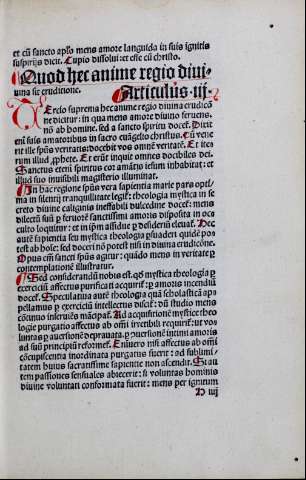 et cū sancto aplo mens amore languida in suis ignitis
suspirijs dicit. Cupio dissolui: et esse cū christo.
Quod hec anime regio diui-
na sit eruditione. Articulus .iij.
Uerelo suprema hec anime regio diuina erudicō
ne dicitur: in qua mens amore diuino feruens,
nō ab homine. sed a sancto spiritu docet. Dicit
em̄ suis amatoribus in sacro euāgelio christus. Cū vene
rit ille spūs veritatis: docebit vos omnē veritatē. Et ite
rum illud ꝓphete. Et erūt inquit omnes docibiles dei.
Sanctus etem̄ spiritus cor amātis iesum inhabitat: et
illud suo inuisibili magisterio illuminat.
In hac regione spūs vera sapientia marie pars opti
ma in silentij tranquillitate legit: theologia mystica in se
creto diuine caliginis ineffabili dulcedine docet: mens
dilectū suū ꝑ feruorē sanctissimi amoris disposita in oc
culto loquitur: et in ipm̄ assidue ꝑ desideriū eleuat. Hec
autē sapientia seu mystica theologia psuaderi quidē pōt
test ab hoīe: sed doceri nō potest nisi in diuina erudicōne.
Opus em̄ sancti spūs agitur: quādo mens in veritate ꝑ
contemplationē illustratur.
Sed considerandū nobis est. qͦ mystica theologia ꝑ
exercitiū affectus purificati acquirit: ꝑ amoris incendiū
docet. Speculatiua autē theologia quā scholasticā ap
pellamus ꝑ exercitiū intellectus discit: dū studio mens
cōtinuo inseruēs mācipat. Ad acquisitionē mystice theo
logie purgatio affectus ab oīni irretibili requirit: ut vo
luntas ꝑ auersionē deprauata, ꝑ auersionē intimi amoris
ad suū principiū reformet. Eniuero nisi affectus ab oīni
cōcupiscentia inordinata purgatus fuerit: ad sublimi
tatem huius sacratissime sapientie non ascendit. Et au
tem passiones sensuales abiecerit: si voluntas hominis
diuine voluntati conformata fuerit: mens per ignitum
D iij